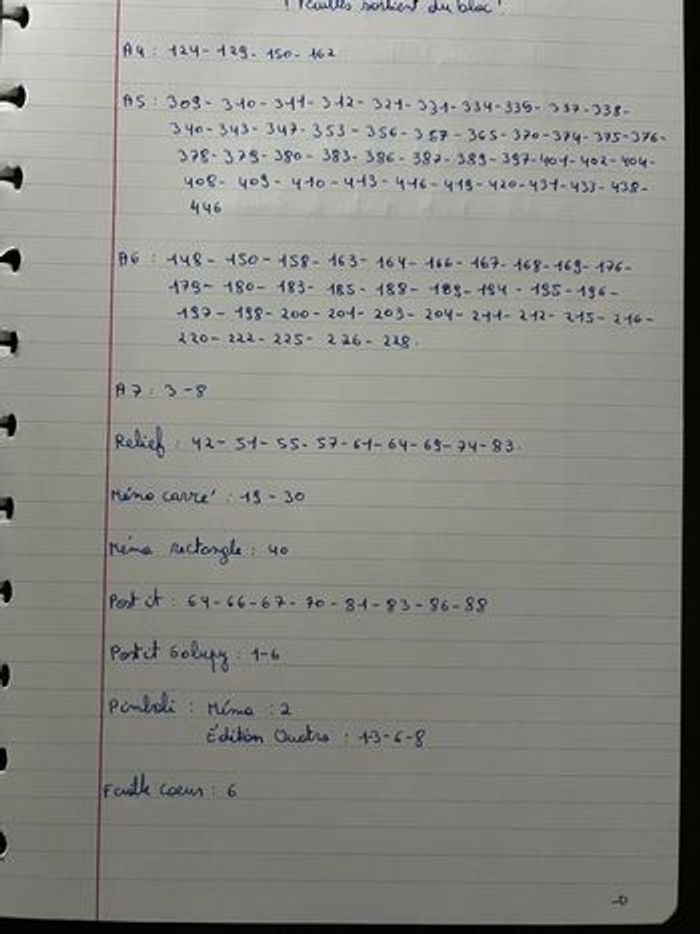 ! Feuilles sortient du bloc !
A4 : 124 - 129 - 150 - 162
A5 : 309 - 310 - 311 - 312 - 321 - 331 - 334 - 335 - 337 - 338 -
340 - 343 - 347 - 353 - 356 - 357 - 365 - 370 - 374 - 375 - 376 -
378 - 379 - 380 - 383 - 386 - 387 - 389 - 397 - 401 - 402 - 404 -
408 - 409 - 410 - 413 - 416 - 419 - 420 - 431 - 433 - 438 -
446
A6 : 148 - 150 - 158 - 163 - 164 - 166 - 167 - 168 - 169 - 176 -
179 - 180 - 183 - 185 - 188 - 189 - 194 - 195 - 196 -
197 - 198 - 200 - 201 - 203 - 204 - 211 - 212 - 215 - 216 -
220 - 222 - 225 - 226 - 228.
A7 : 3 - 8
Relief : 42 - 51 - 55 - 57 - 61 - 64 - 69 - 74 - 83.
Mémo carré : 19 - 30
Mémo rectangle : 40
Post it : 64 - 66 - 67 - 70 - 81 - 83 - 86 - 88
Post it : 1 - 6
: Mémo : 2
Édition Quatro : 13 - 6 - 8
Feuille coeur : 6